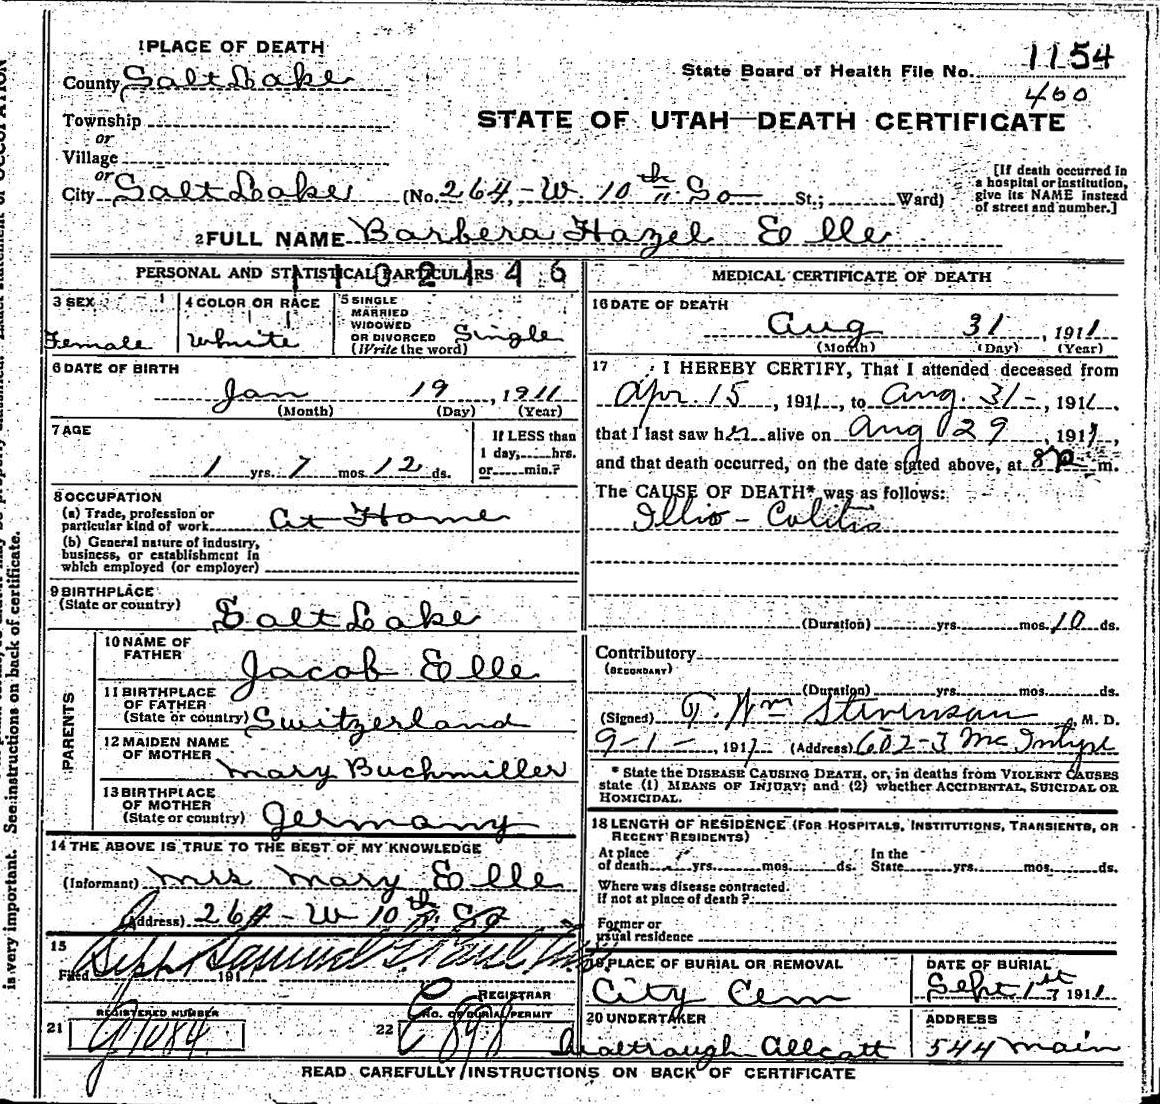 1 PLACE OF DEATH
County Salt Lake
State Board of Health File No. 1154
400
Township
or
Village
or
STATE OF UTAH—DEATH CERTIFICATE
City Salt Lake (No. 264 - W. 10th So St.; Ward)
[If death occurred in a hospital or institution, give its NAME instead of street and number.]
2 FULL NAME Barbera Hazel Elle
PERSONAL AND STATISTICAL PARTICULARS
1102146
3 SEX
Female
4 COLOR OR RACE
White
5 SINGLE
MARRIED
WIDOWED
OR DIVORCED
(Write the word)
Single
6 DATE OF BIRTH
Jan 19, 1911
(Month) (Day) (Year)
7 AGE
1 yrs. 7 mos. 12 ds.
If LESS than
1 day, hrs.
or min.?
8 OCCUPATION
(a) Trade, profession or
particular kind of work At Home
(b) General nature of industry,
business, or establishment in
which employed (or employer)
9 BIRTHPLACE
(State or country) Salt Lake
PARENTS
10 NAME OF
FATHER Jacob Elle
11 BIRTHPLACE
OF FATHER
(State or country) Switzerland
12 MAIDEN NAME
OF MOTHER Mary Buchmiller
13 BIRTHPLACE
OF MOTHER
(State or country) Germany
14 THE ABOVE IS TRUE TO THE BEST OF MY KNOWLEDGE
(Informant) Mrs Mary Elle
(Address) 264 - W 10th So
15
Filed Sep 191
REGISTRAR
REGISTERED NUMBER
21
NO. OF BURIAL PERMIT
22 C 898
MEDICAL CERTIFICATE OF DEATH
16 DATE OF DEATH
Aug 31, 1911
(Month) (Day) (Year)
17 I HEREBY CERTIFY, That I attended deceased from
Apr. 15, 1911, to Aug. 31-, 1911,
that I last saw her alive on Aug 29, 1911,
and that death occurred, on the date stated above, at 8 p m.
The CAUSE OF DEATH* was as follows:
Illio - Colitis
(Duration) yrs. mos. 10 ds.
Contributory
(SECONDARY)
(Duration) yrs. mos. ds.
(Signed) T. Wm Stevenson, M. D.
9-1-, 1911 (Address) 602-3 McIntyre
* State the DISEASE CAUSING DEATH, or, in deaths from VIOLENT CAUSES
state (1) MEANS OF INJURY; and (2) whether ACCIDENTAL, SUICIDAL OR
HOMICIDAL.
18 LENGTH OF RESIDENCE (FOR HOSPITALS, INSTITUTIONS, TRANSIENTS, OR
RECENT RESIDENTS)
At place
of death yrs. mos. ds.
In the
State yrs. mos. ds.
Where was disease contracted
if not at place of death?
Former or
usual residence
19 PLACE OF BURIAL OR REMOVAL
City Cem
DATE OF BURIAL
Sept 1st 1911
20 UNDERTAKER
Allcott
ADDRESS
544 Main
READ CAREFULLY INSTRUCTIONS ON BACK OF CERTIFICATE
is very important. See instructions on back of certificate.